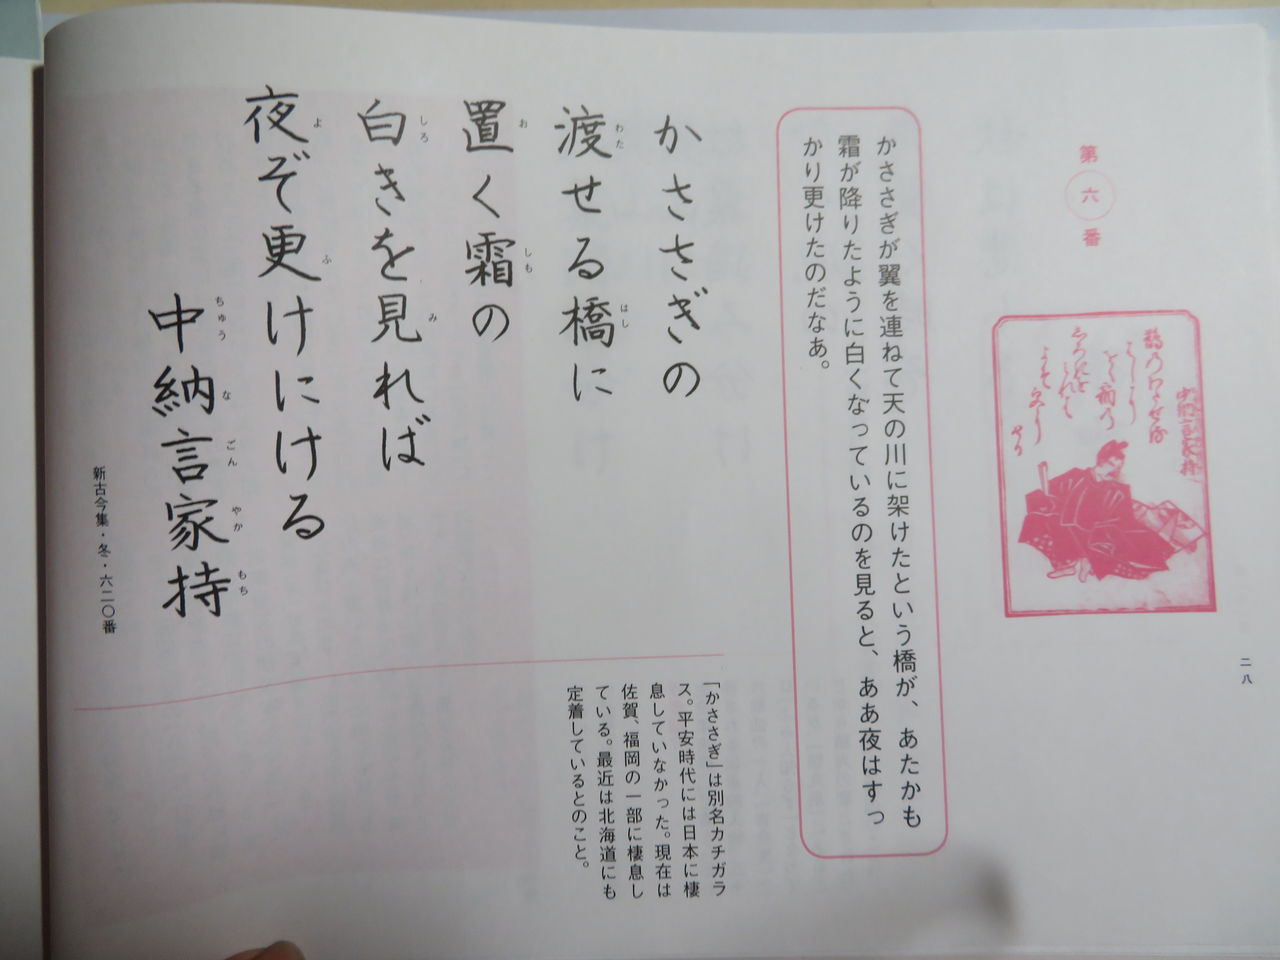 第六番
中納言家持
かささぎが翼を連ねて天の川に架けたという橋が、あたかも
霜が降りたように白くなっているのを見ると、ああ夜はすっ
かり更けたのだなあ。
かささぎの
渡せる橋に
わた
はし
置く霜の
お
しも
白きを見れば
しろ
み
夜ぞ更けにける
よ
ふ
中納言家持
ちゅう
な
ごん
やか
もち
新古今集・冬・六二〇番
「かささぎ」は別名カチガラ
ス。平安時代には日本に棲
息していなかった。現在は
佐賀、福岡の一部に棲息し
ている。最近は北海道にも
定着しているとのこと。
二八